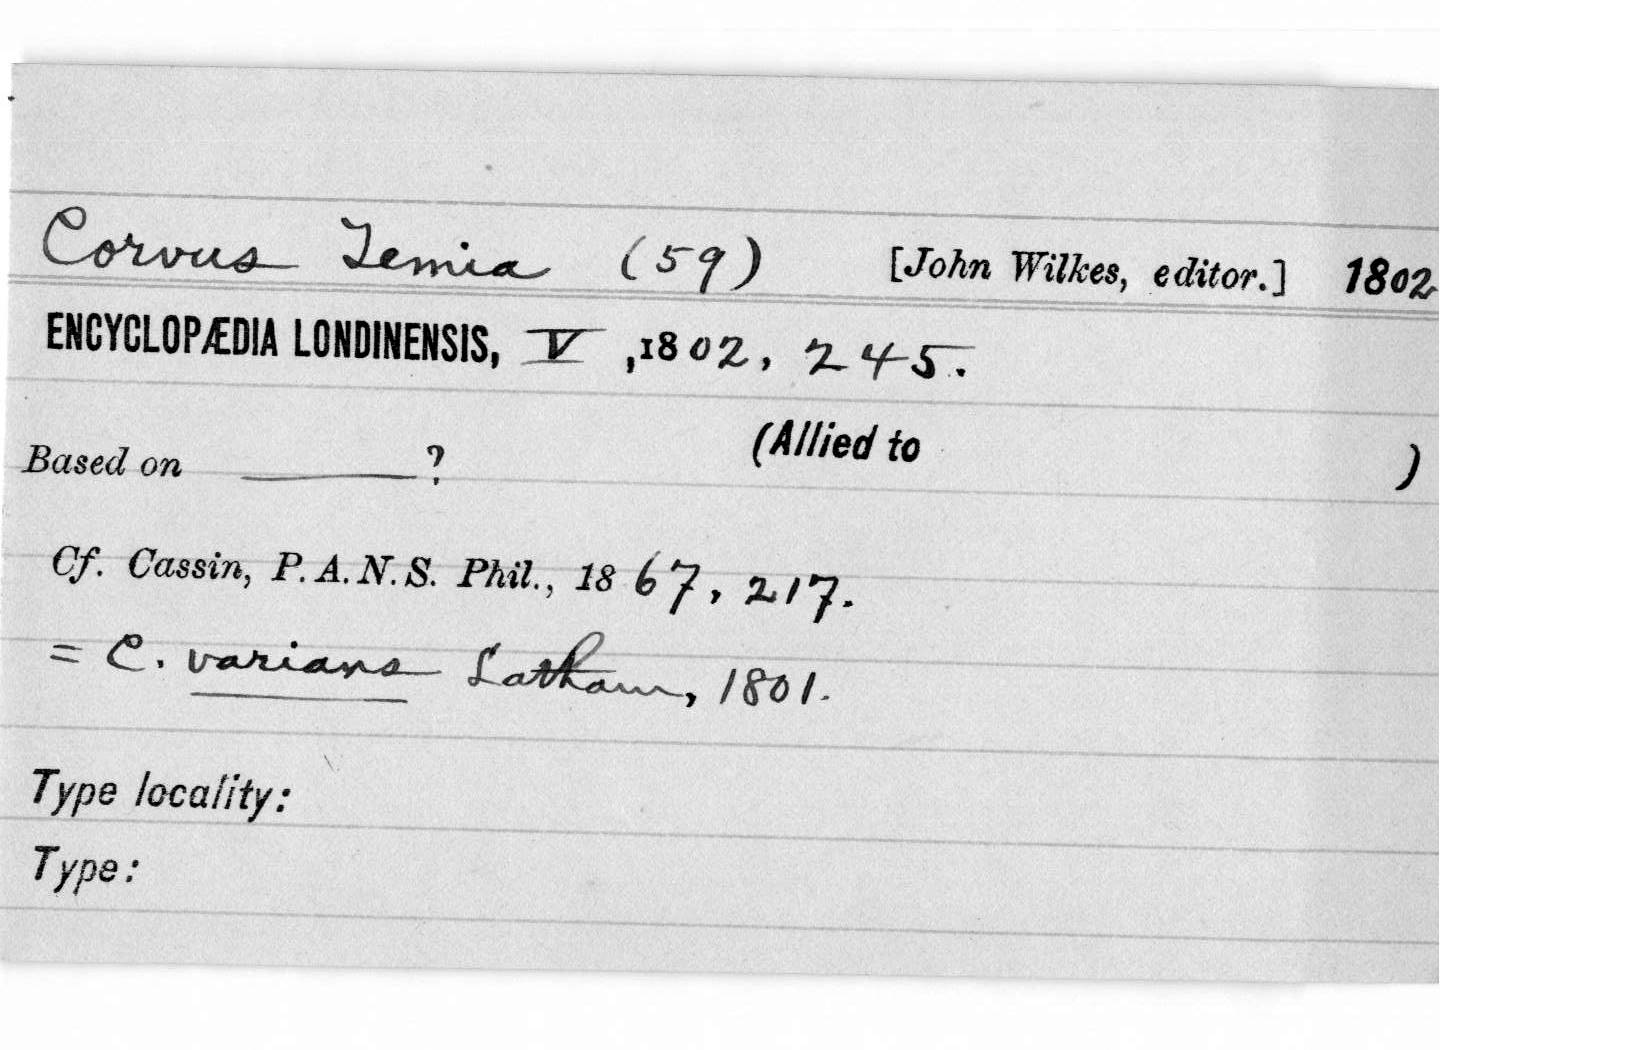 Corvus Temia (59) [John Wilkes, editor.] 1802
ENCYCLOPÆDIA LONDINENSIS, V, 1802, 245.
Based on ———? (Allied to )
Cf. Cassin, P. A. N. S. Phil., 1867, 217.
= C. varians Latham, 1801.
Type locality:
Type: